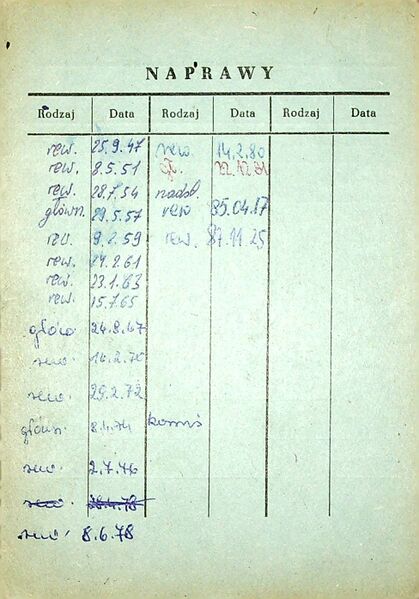 NAPRAWY
Rodzaj Data Rodzaj Data Rodzaj Data
rew. 25.9.47 rew. 14.2.80
rew. 8.5.51 gł. 22.12.81
rew. 28.7.54 nadsł.
główn. 29.5.57 rew 85.04.17
rew. 9.2.59 rew. 87.11.25
rew. 21.2.61
rew. 23.1.63
rew. 15.7.65
główn. 24.8.67
rew. 14.2.70
rew. 29.2.72
główn. 8.4.74
rew. 2.7.76
rew. 28.4.78
rew. 8.6.78